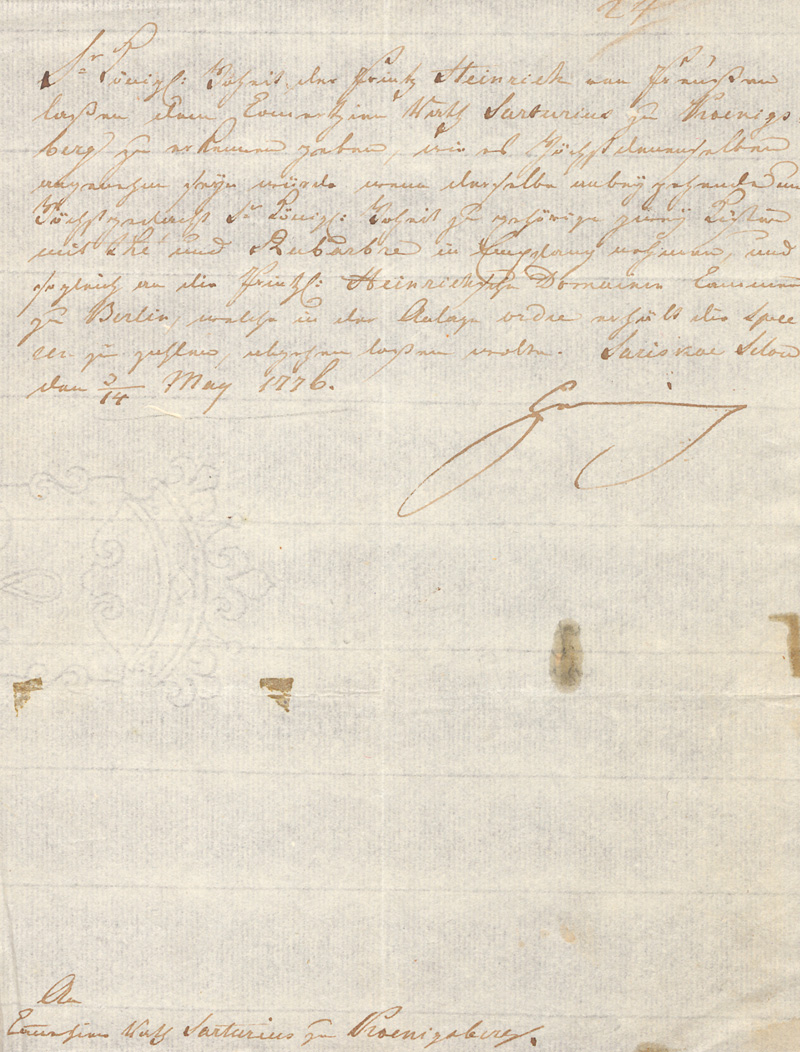 24
Sr Königl: Hoheit, der Printz Heinrich von Preußen
laßen dem Commercien Rath Sarturius zu Koenigs-
berg zu erkennen geben, wie es Höchstdenenselben
angenehm seyn würde wenn derselbe anbey gehende an
Höchstgedacht Sr Königl: Hoheit zu gehörige zwey Kisten
mit Thé und Rubarbre in Empfang nehmen, und
sogleich an die Printzl: Heinrichsche Domainen Cammer
zu Berlin, welche in der Anlage ordre erhält die Spee
sen zu zahlen, abgehen laßen wolte. Sariskoe Selou
den 3/14 May 1776.
An
Commercien Rath Sarturius zu Koenigsberg.